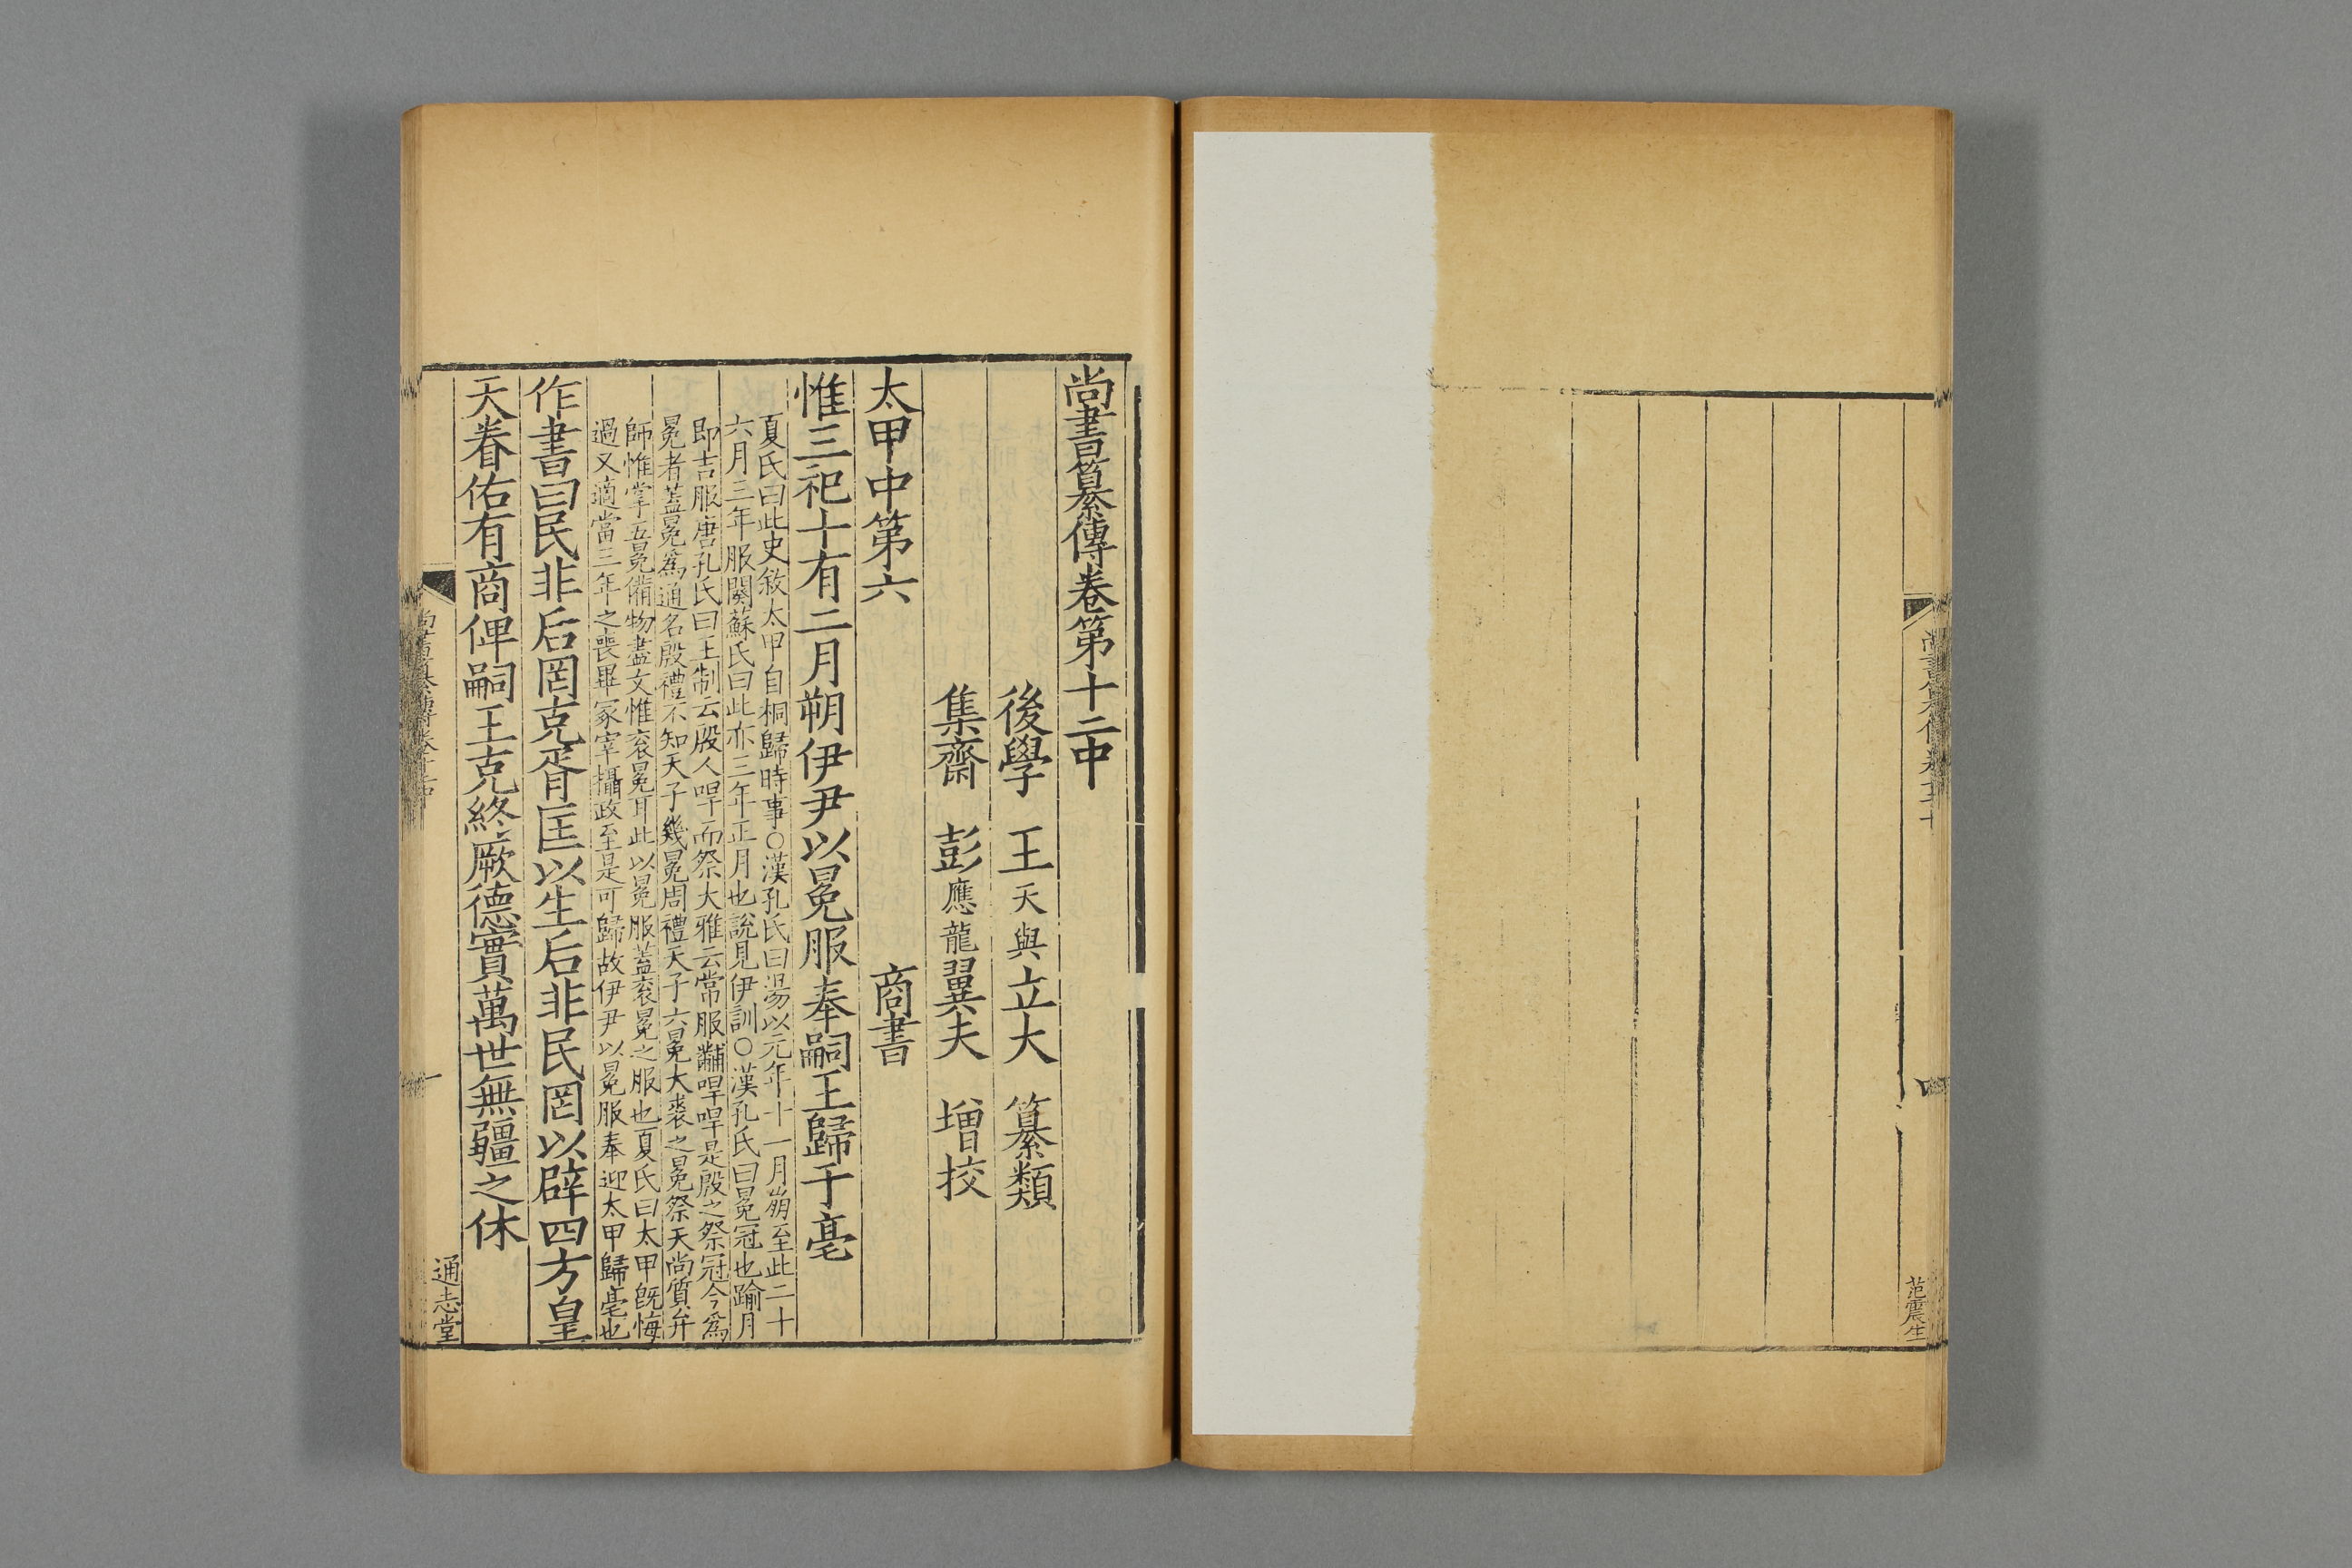 范震生
四
尚書纂傳卷第十二中
後學　王天與立大　纂類
集齋　彭應龍翼夫　增挍
太甲中第六　商書
惟三祀十有二月朔伊尹以冕服奉嗣王歸于亳
夏氏曰此史敘太甲自桐歸時事○漢孔氏曰湯以元年十一月崩至此二十
六月三年服闋蘇氏曰此亦三年正月也說見伊訓○漢孔氏曰冕冠也踰月
即吉服唐孔氏曰王制云殷人哻而祭大雅云常服黼哻哻是殷之祭冠今爲
冕者蓋冕爲通名殷禮不知天子幾冕周禮天子六冕大裘之冕祭天尚質弁
師惟掌五冕備物盡文惟衮冕耳此以冕服蓋衮冕之服也夏氏曰太甲旣悔
過又適當三年之喪畢冢宰攝政至是可歸故伊尹以冕服奉迎太甲歸亳也
作書曰民非后罔克胥匡以生后非民罔以辟四方皇
天眷佑有商俾嗣王克終厥德實萬世無疆之休
尚書纂傳卷十二中
一
通志堂